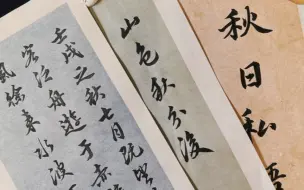 秋日私
山色秋分
壬戌之秋七月既望
客泛舟遊于赤
風徐來水波